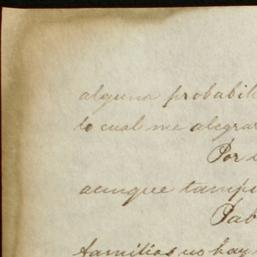 alguna probabili
lo cual me alegrar
Por
aunque tampo
Pab
familias no hay